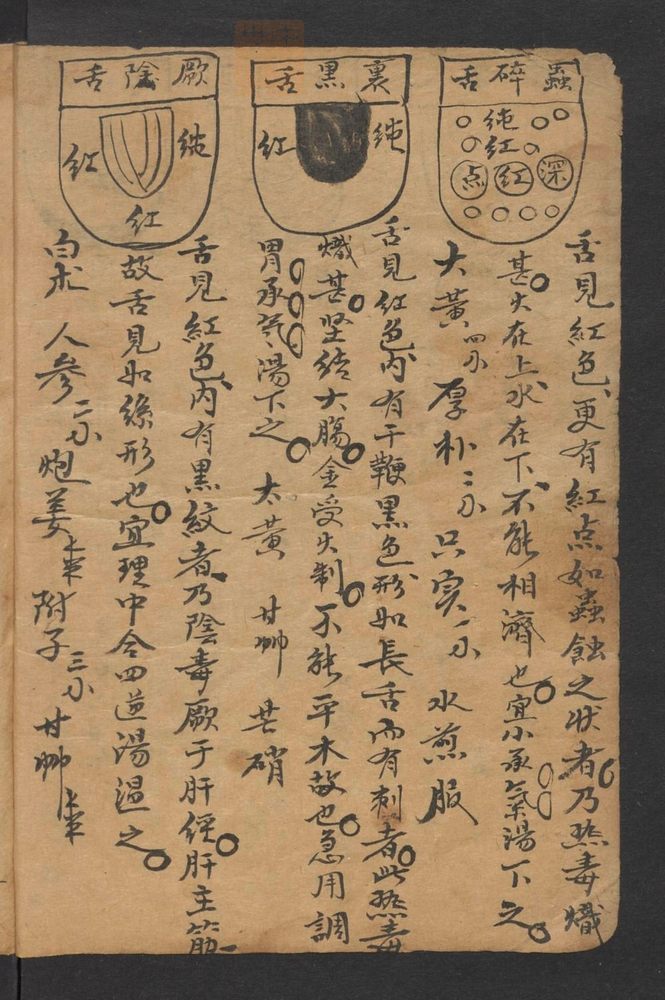 蟲碎舌
純紅
深紅点
舌見紅色更有紅点如蟲蝕之状者乃热毒熾
甚火在上水在下不能相濟也宜小承氣湯下之
大黄四小 厚朴二小 只实一小 水煎服
裏黑舌
純
紅
舌見紅色内有干鞕黑色形如長舌而有刺者此热毒
熾甚坚结大腸金受火制不能平木故也急用調
胃承氣湯下之 大黄 甘艸 芒硝
厥陰舌
純
紅
紅
舌見紅色内有黑紋者乃陰毒厥于肝経肝主筋
故舌見如絲形也宜理中合四逆湯温之
白朮 人參二小 炮姜 附子三小 甘艸